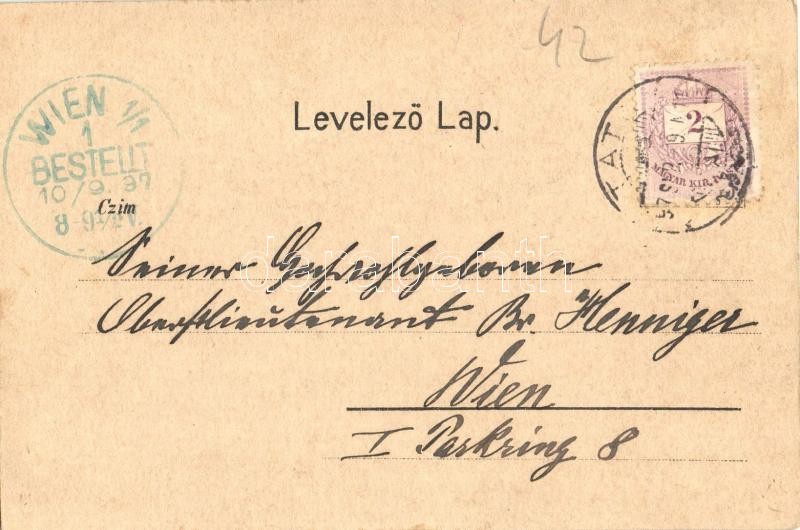 42
Levelezö Lap.
WIEN 1/1
1
BESTELLT
10/9.97
8-9½V.
TAT
2
MAGYAR KIR. POSTA
Czim
Seiner Hochwohlgeboren
Oberstlieutenant Br. Henniger
Wien
I Parkring 8
darabanth